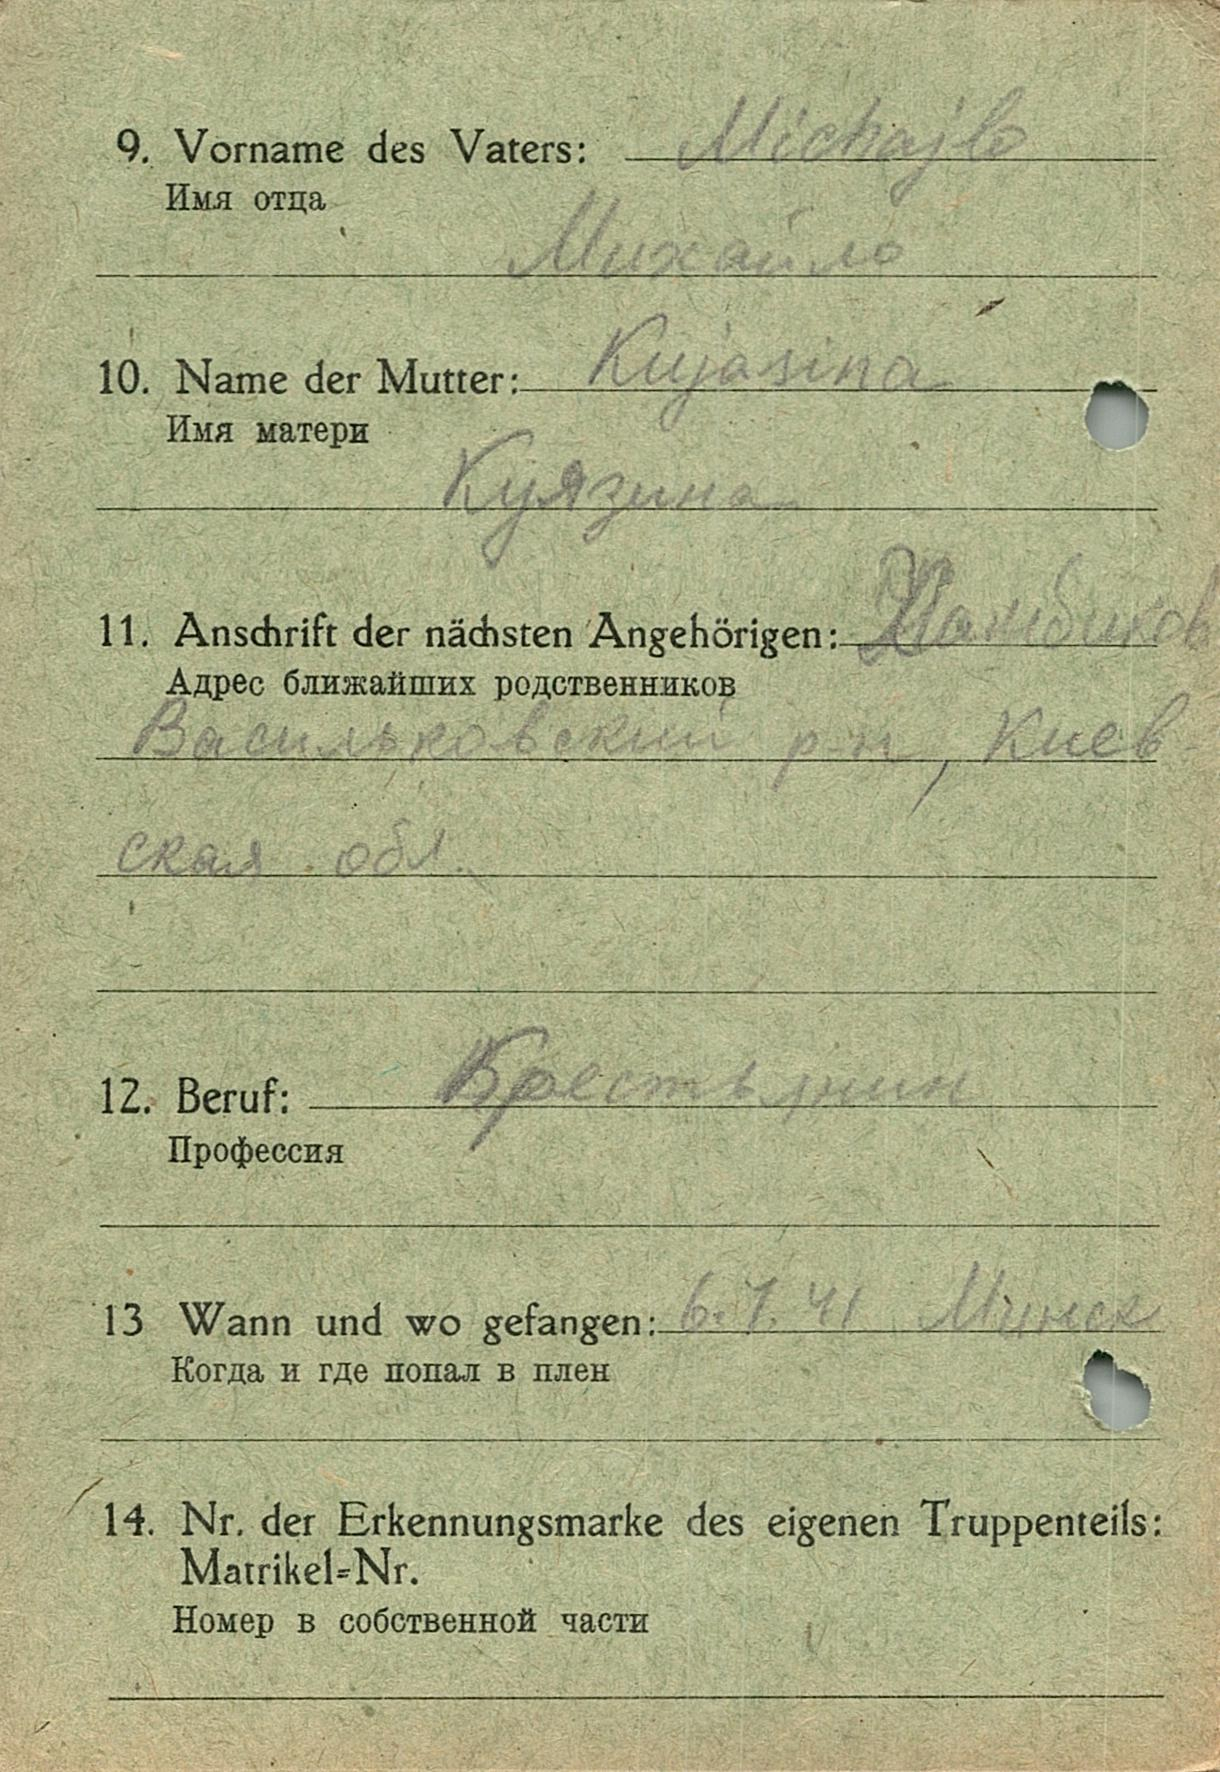 9. Vorname des Vaters: Michajlo
Имя отца
Михайло
10. Name der Mutter: Kujasina
Имя матери
Куязина
11. Anschrift der nächsten Angehörigen:
Адрес ближайших родственников
Васильковский р-н, Киев-
ская обл.
12. Beruf: Крестьянин
Профессия
13 Wann und wo gefangen: 6.7.41 Минск
Когда и где попал в плен
14. Nr. der Erkennungsmarke des eigenen Truppenteils:
Matrikel=Nr.
Номер в собственной части